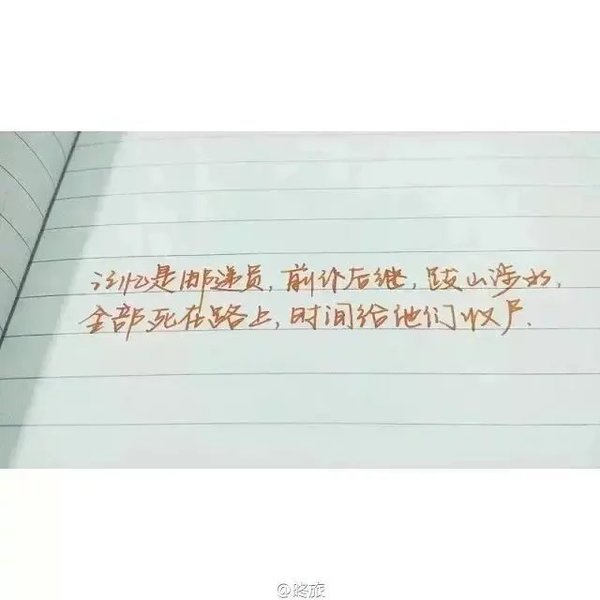 记忆是邮递员,前仆后继,跋山涉水,
全部死在路上,时间给他们收尸.
@咚旅